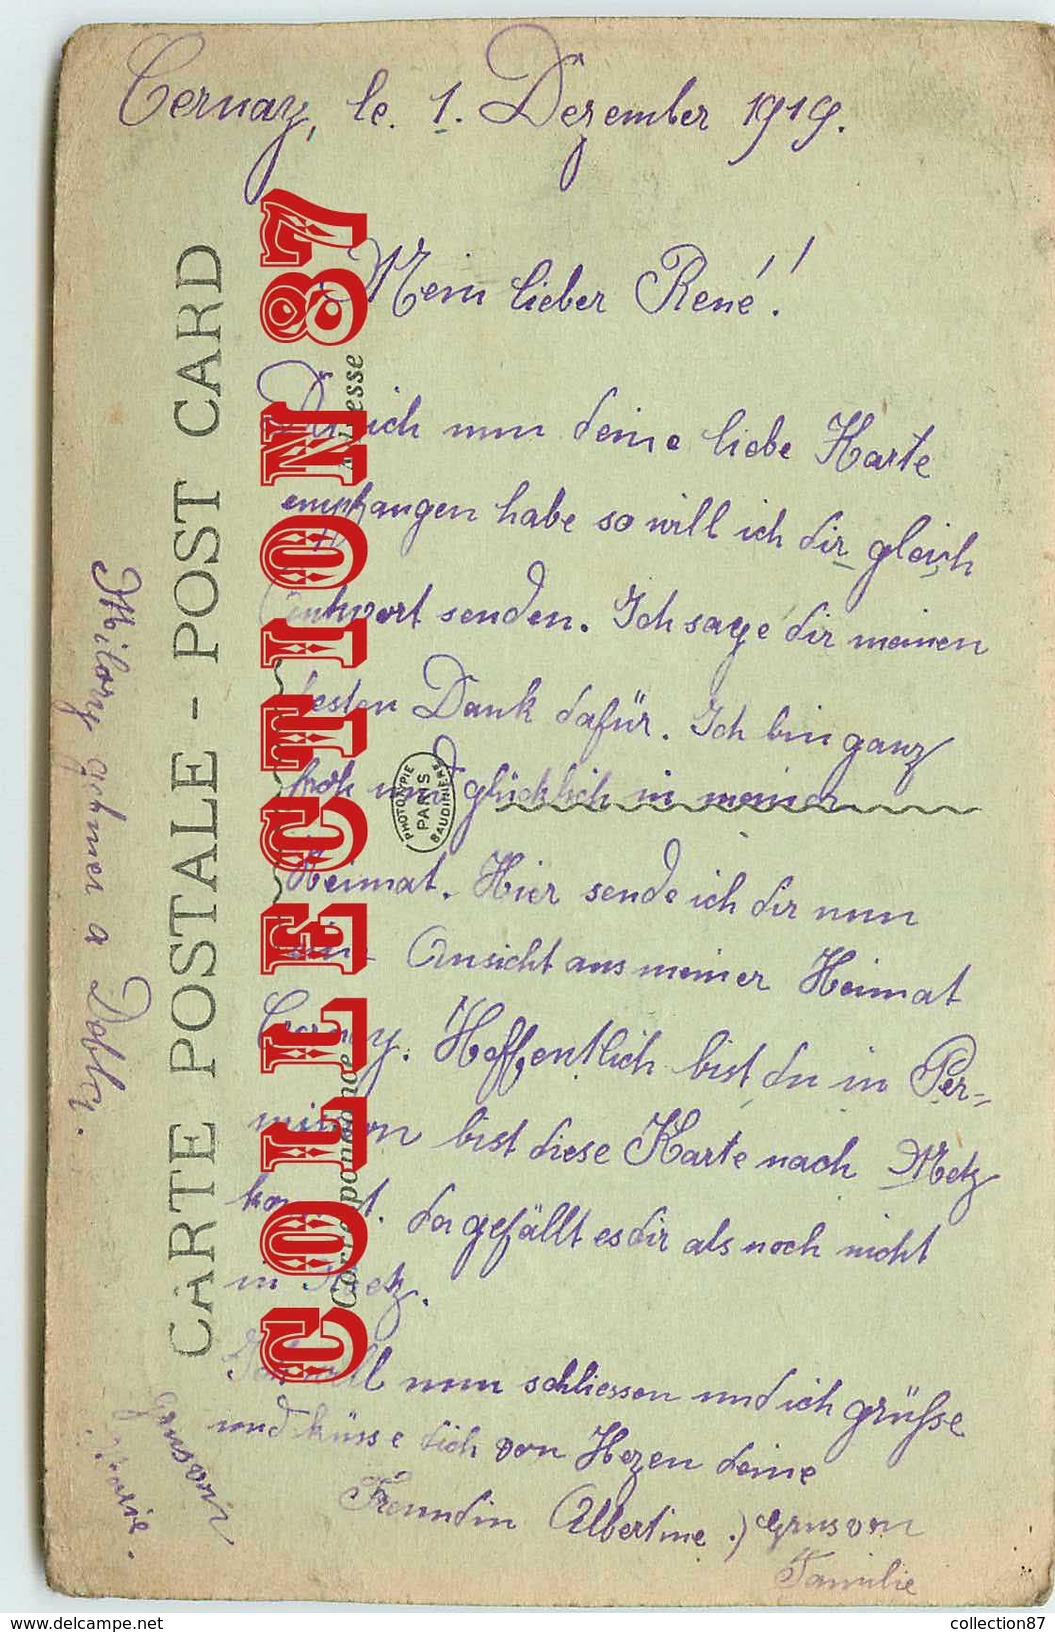 Cernay, le. 1. Dezember 1919.
Mein lieber René!
Da ich nun deine liebe Karte
empfangen habe so will ich dir gleich
Antwort senden. Ich sage dir meinen
besten Dank dafür. Ich bin ganz
froh und glücklich in meiner
Heimat. Hier sende ich dir nun
Ansicht aus meiner Heimat
Cernay. Hoffentlich bist du in Per-
mission bist diese Karte nach Metz
kommt. da gefällt es dir als noch nicht
in Metz.
Ich will nun schliessen und ich grüsse
und küsse dich von Hezen deine
Freundin Albertine.) Grus von
Familie
CARTE POSTALE - POST CARD
Adresse
Correspondance
PHOTOTYPIE
PARIS
BAUDINIERE
COLLECTION 87
a
collection87